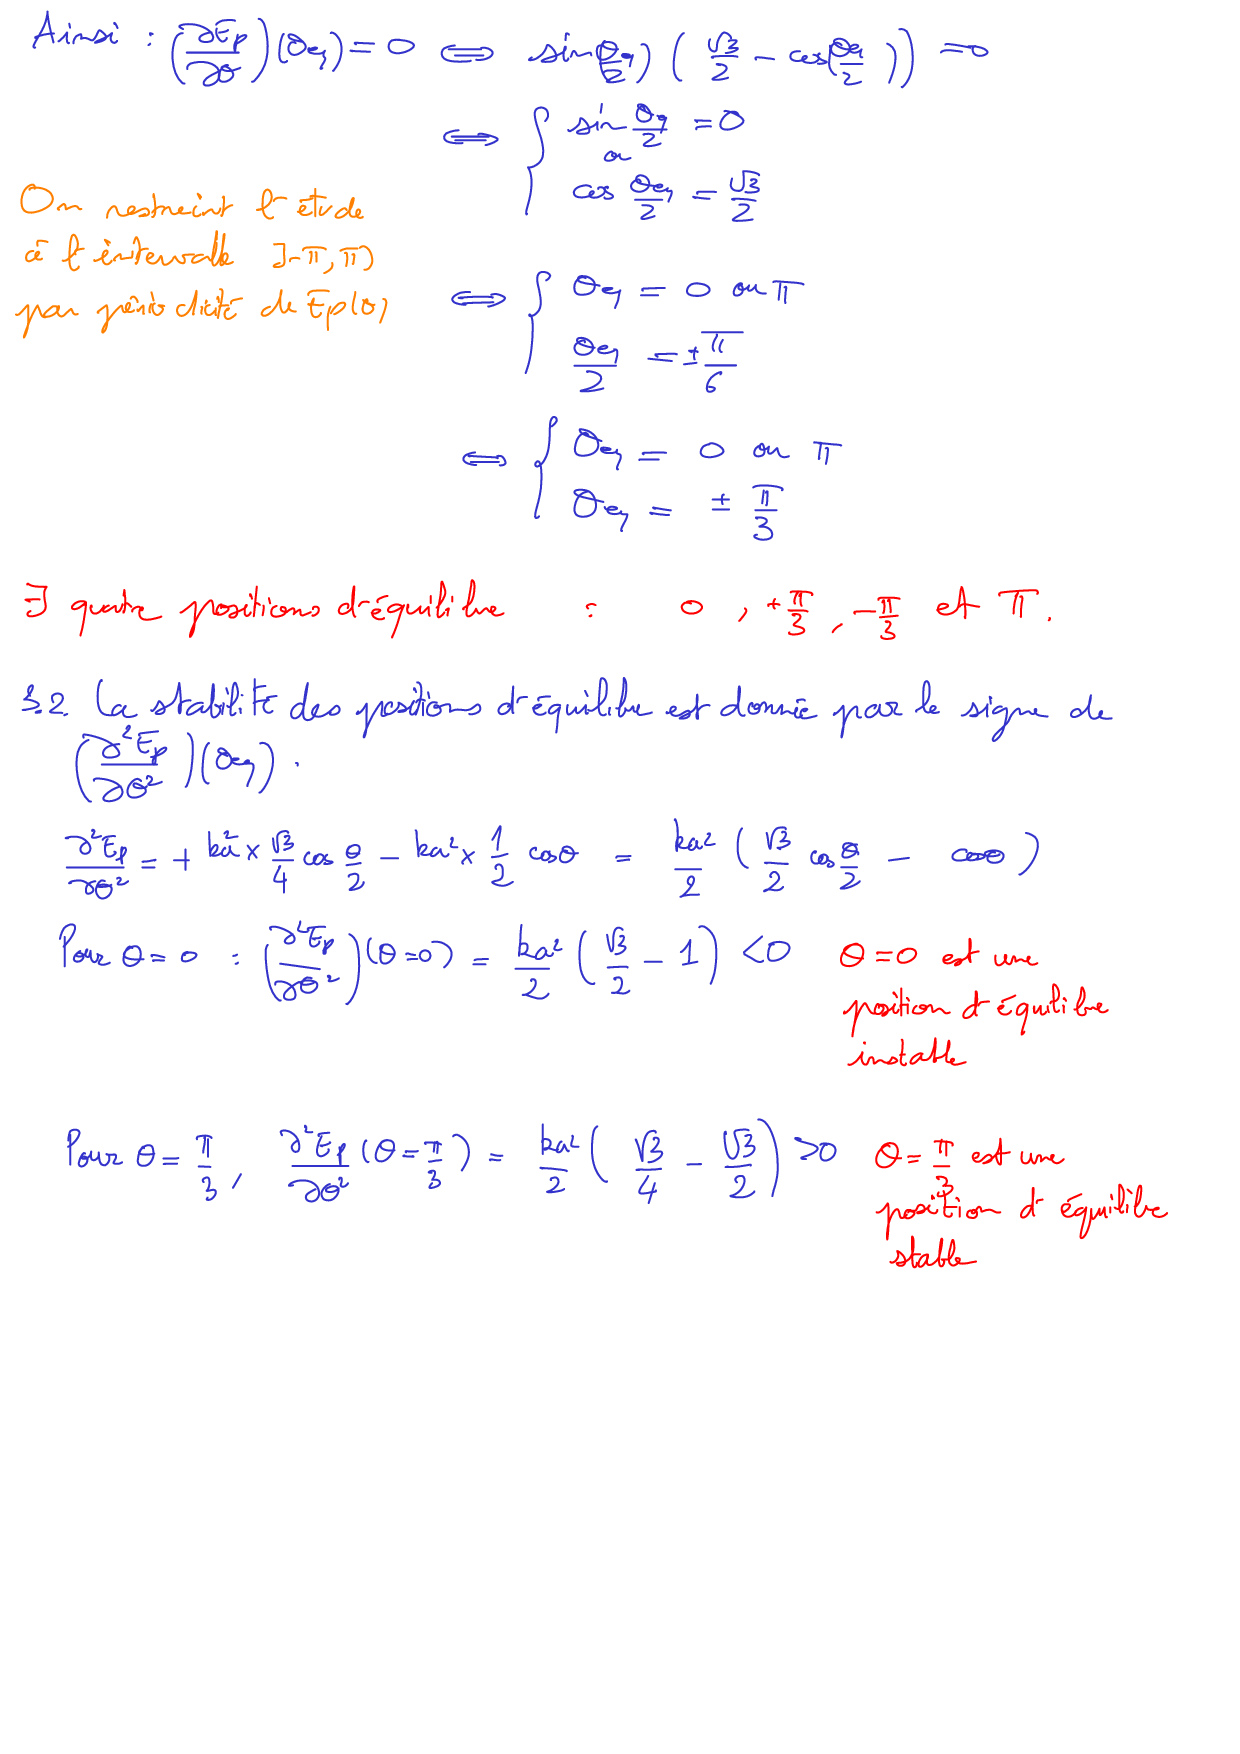 Ainsi : (∂Ep/∂θ)(θeq) = 0 ⟺ sin(θeq/2) ( √3/2 − cos(θeq/2 )) = 0
⟺ { sin θeq/2 = 0
ou
cos θeq/2 = √3/2
On restreint l'étude
à l'intervalle ]-π, π]
par périodicité de Ep(θ)
⟺ { θeq = 0 ou π
θeq/2 = ± π/6
⟺ { θeq = 0 ou π
θeq = ± π/3
∃ quatre positions d'équilibre : 0 , +π/3 , −π/3 et π.
3.2. La stabilité des positions d'équilibre est donnée par le signe de
(∂²Ep/∂θ²)(θeq) .
∂²Ep/∂θ² = + ka² × √3/4 cos θ/2 − ka² × 1/2 cosθ = ka²/2 ( √3/2 cos θ/2 − cosθ )
Pour θ = 0 : (∂²Ep/∂θ²)(θ=0) = ka²/2 ( √3/2 − 1 ) < 0
θ = 0 est une
position d'équilibre
instable
Pour θ = π/3 , ∂²Ep/∂θ² (θ = π/3) = ka²/2 ( √3/4 − √3/2 ) > 0
θ = π/3 est une
position d'équilibre
stable